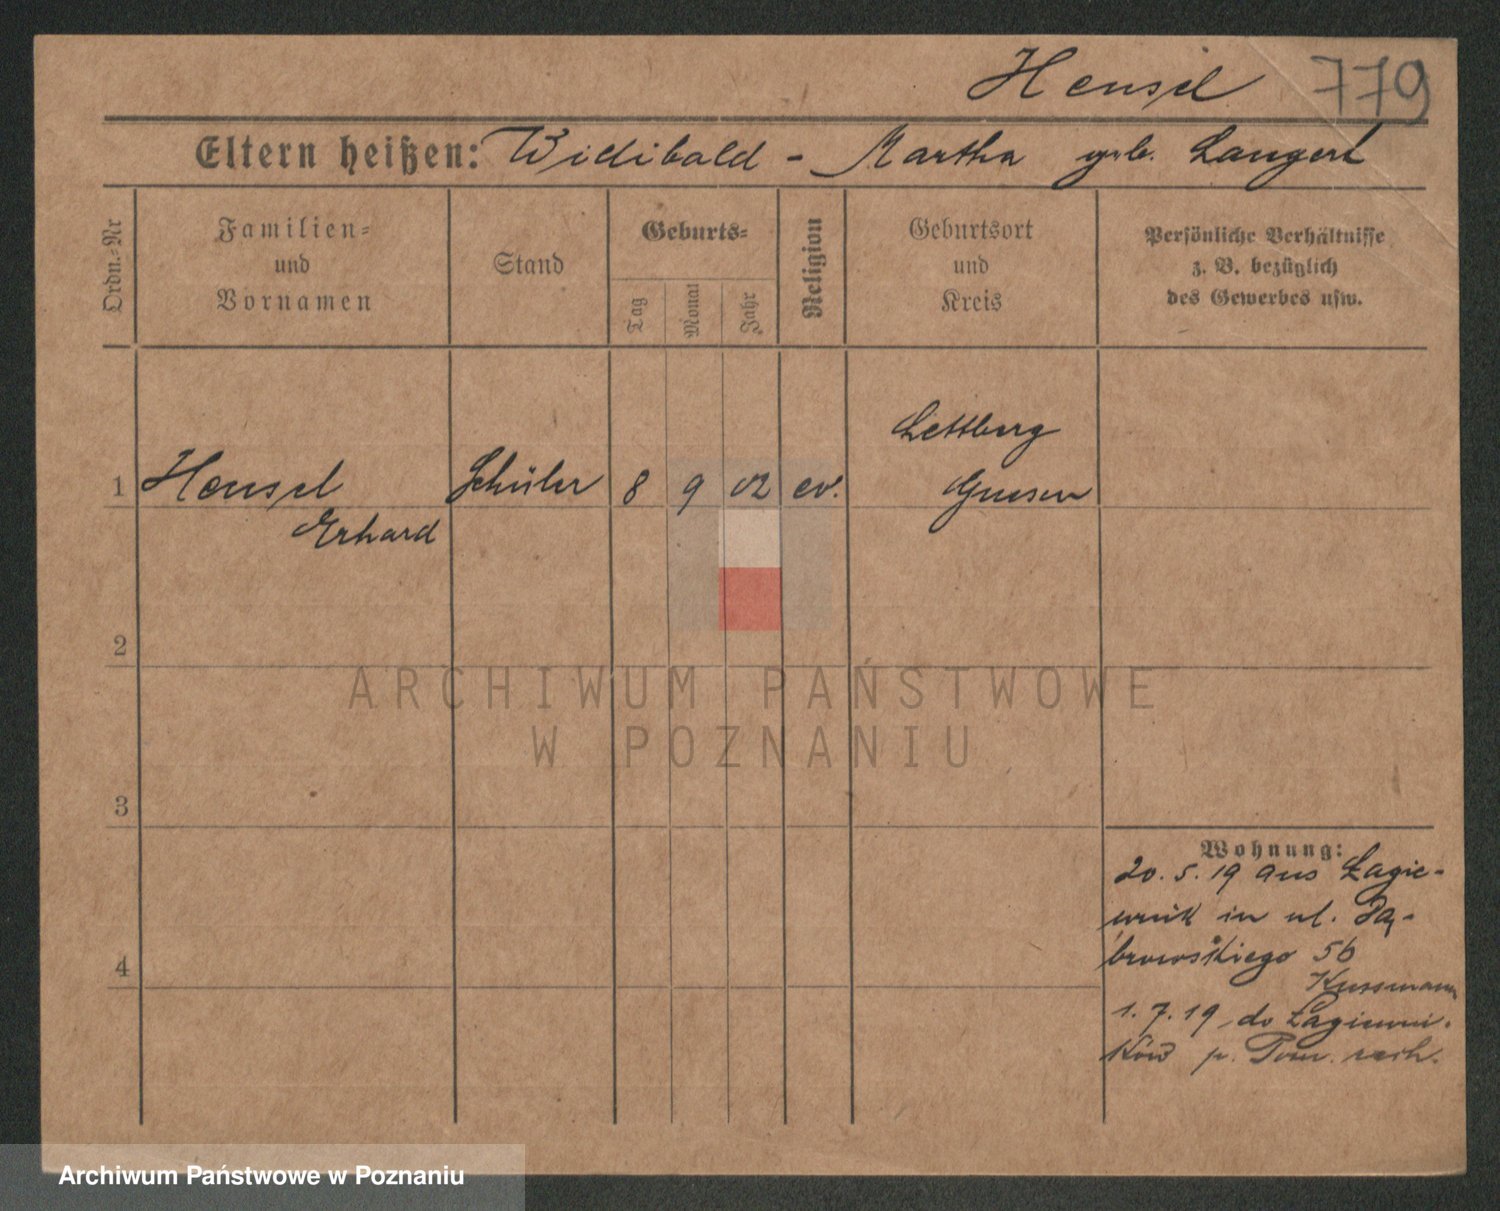 Hensel 779
Eltern heißen: Willibald - Martha geb. Langert
Ordn.-Nr
Familien-
und
Vornamen
Stand
Geburts-
Tag
Monat
Jahr
Religion
Geburtsort
und
Kreis
Persönliche Verhältnisse
z. B. bezüglich
des Gewerbes usw.
Lettberg
1 Hensel Schüler 8 9 02 ev. Gnesen
Erhard
2
ARCHIWUM PAŃSTWOWE
W POZNANIU
3
Wohnung:
20. 5. 19 aus Łagie-
wnik in ul. Dą-
4
browskiego 56
Kussmann
1. 7. 19 do Łagiewni-
ków p.
Archiwum Państwowe w Poznaniu